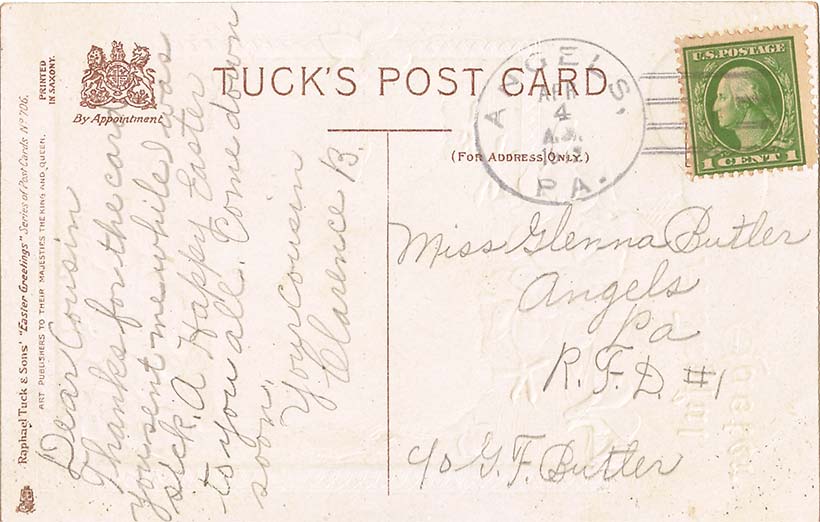 Raphael Tuck & Sons' "Easter Greetings" Series of Post Cards Nº 706.
ART PUBLISHERS TO THEIR MAJESTIES THE KING AND QUEEN.
PRINTED
IN SAXONY.
By Appointment
TUCK'S POST CARD
(FOR ADDRESS ONLY.)
ANGELS,
APR
4
A.M.
PA.
U.S. POSTAGE
1 CENT 1
Dear Cousin
Thanks for the card
you sent me while I was
sick. A Happy Easter
to you all. Come down
soon.
Your Cousin
Clarence B.
Miss Glenna Butler
Angels
Pa
R.F.D. #1
c/o G.F. Butler